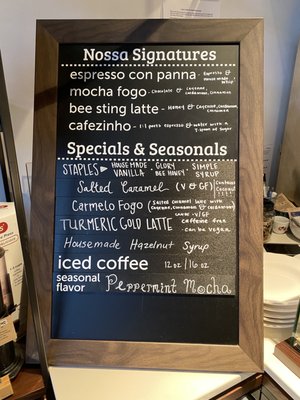 Nossa Signatures
espresso con panna - Espresso & house made whip
mocha fogo - Chocolate & Cayenne, Cardamom, Cinnamon
bee sting latte - Honey & Cayenne, Cardamom, Cinnamon
cafezinho - 1:1 parts espresso & water with a
of sugar
Specials & Seasonals
STAPLES HOUSEMADE VANILLA GLORY BEE HONEY SIMPLE SYRUP
Salted Caramel (V & GF) Contains Coconut
Carmelo Fogo (Salted Caramel latte with
Cayenne, Cinnamon & Cardamom)
V/GF
TURMERIC GOLD LATTE caffeine free
- can be vegan
Housemade Hazelnut Syrup
iced coffee 12 oz / 16 oz
seasonal
flavor Peppermint Mocha